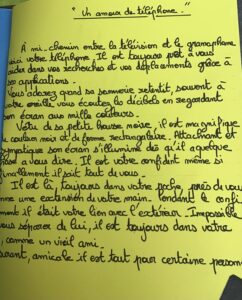 "Un amour de téléphone."
A mi-chemin entre la télévision et le gramophone
voici votre téléphone. Il est toujours prêt à vous
aider dans vos recherches et vos déplacements grâce à
ses applications.
Vous adorez quand sa sonnerie retentit, souvent à
votre oreille vous écoutez les décibels en regardant
son écran aux mille couleurs.
Vêtu de sa petite housse noire, il est magnifique
de couleur noir et de forme rectangulaire. Attachant et
sympatique son écran s'illumine dès qu'il a quelque
chose à vous dire. Il est votre confident même si
finalement il sait tout de vous.
Il est là, toujours dans votre poche, près de vous
comme une extension de votre main. Pendant le confi
ment il était votre lien avec l'extérieur. Impossible
vous séparer de lui, il est toujours dans votre
, comme un vieil ami.
amicale il est tout pour certaine person